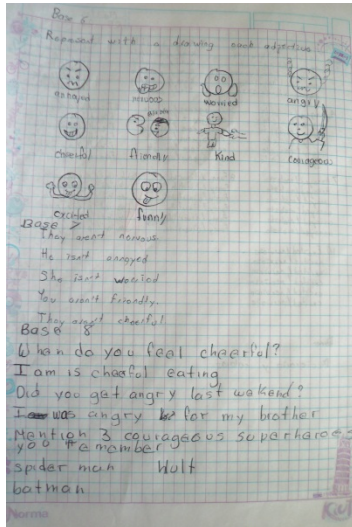 Base 6
Represent with a drawing each adjective
annoyed nervous worried angry
cheerful friendly Kind courageous
excited funny
Base 7
They aren't nervous.
He isn't annoyed
She isn't worried
You aren't friendly.
They aren't cheerful
Base 8
When do you feel cheerful?
I am is cheerful eating
Did you get angry last wekend?
I was angry for my brother
Mention 3 courageous superheroes
you remember
spider man Hult
batman
Norma